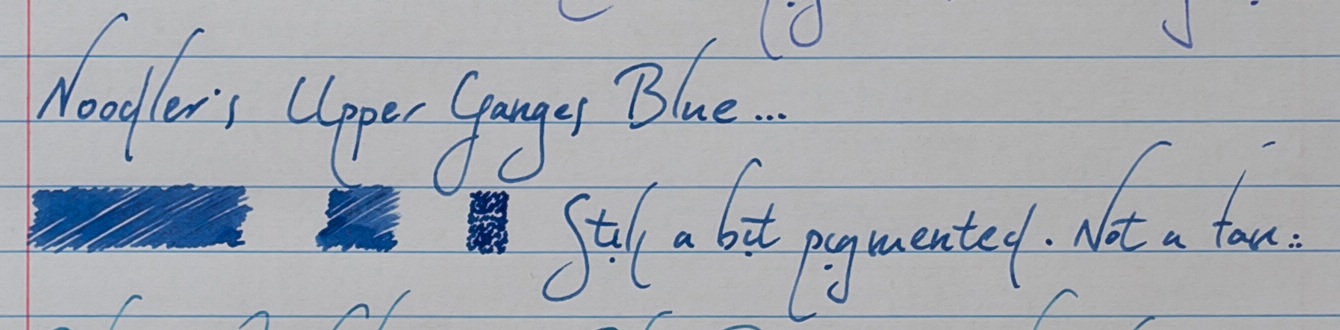 Noodler's Upper Ganges Blue...
Still a bit pigmented. Not a fan..